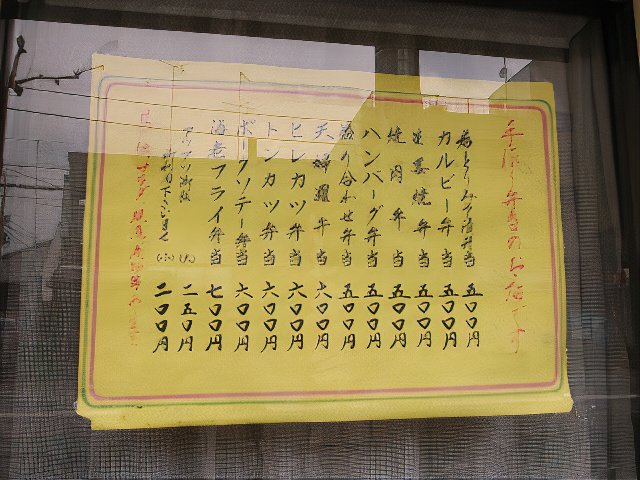 手作り弁当のお店です
カルビー弁当 五〇〇円
生姜焼弁当 五〇〇円
焼肉弁当 五〇〇円
ハンバーグ弁当 五〇〇円
詰め合わせ弁当 五〇〇円
天婦羅弁当 六〇〇円
ヒレカツ弁当 六〇〇円
トンカツ弁当 六〇〇円
ポークソテー弁当 六〇〇円
海老フライ弁当 七〇〇円
アツアツ御飯 (大) 二五〇円
御利用下さいませ (小) 二〇〇円